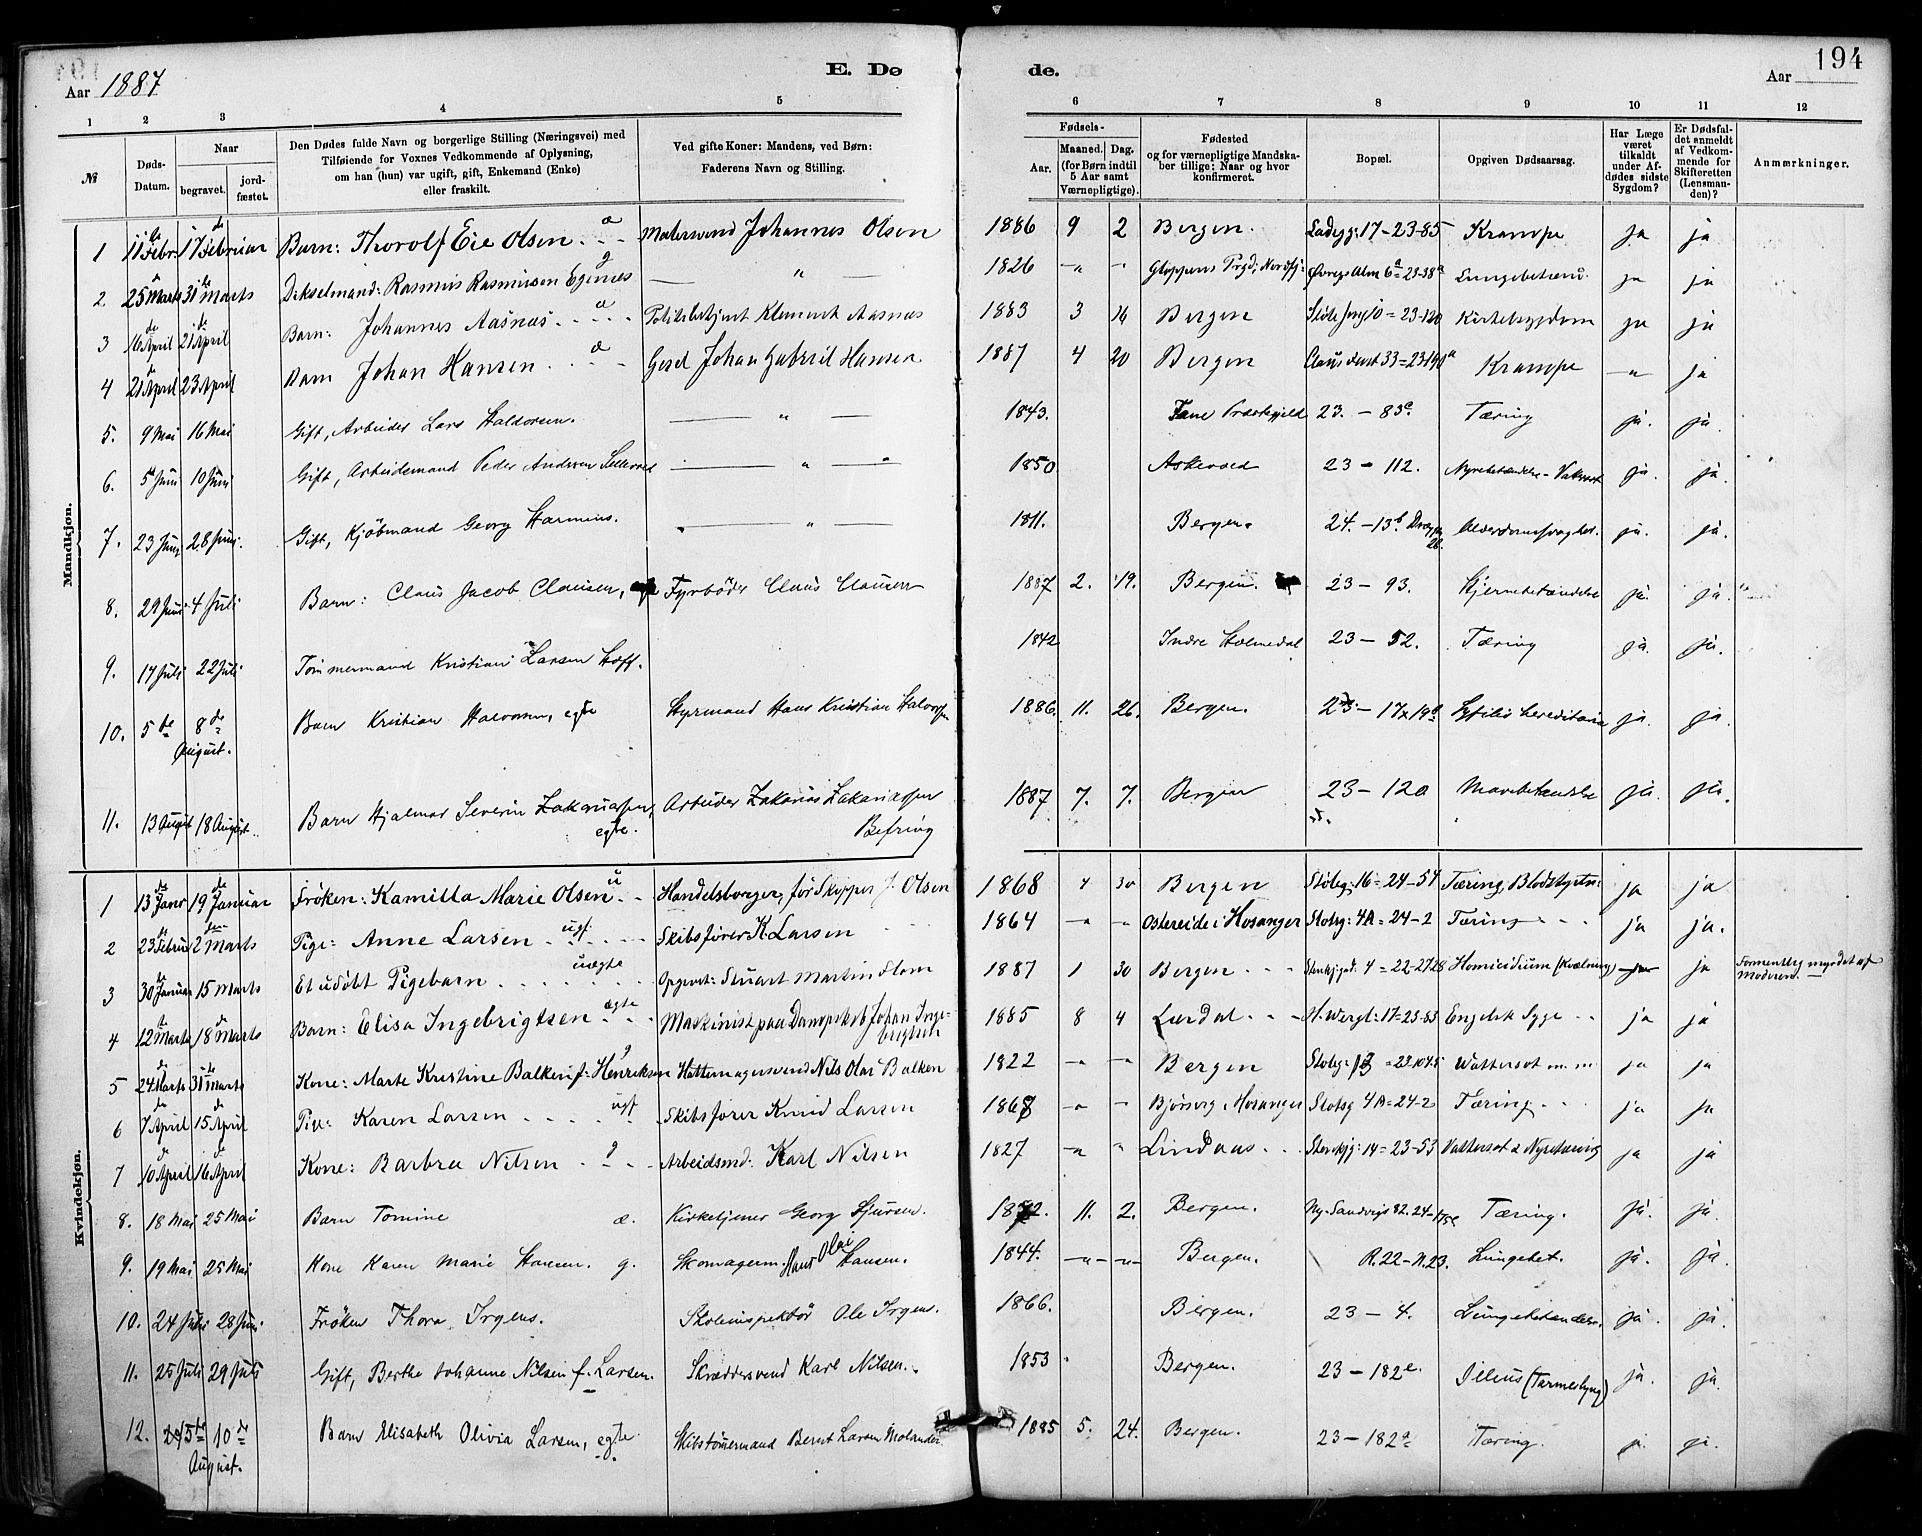 194
Aar 1887
E. Dø
de.
Aar
1 2 3 4 5 6 7 8 9 10 11 12
№
Døds-Datum.
Naar
begravet.
jordfæstet.
Den Dødes fulde Navn og borgerlige Stilling (Næringsvei) med
Tilføiende for Voxnes Vedkommende af Oplysning,
om han (hun) var ugift, gift, Enkemand (Enke)
eller fraskilt.
Ved gifte Koner: Mandens, ved Børn:
Faderens Navn og Stilling.
Fødsels-
Aar.
Maaned. Dag.
(for Børn indtil
5 Aar samt
Værnepligtige).
Fødested
og for værnepligtige Mandska-
ber tillige: Naar og hvor
konfirmeret.
Bopæl.
Opgiven Dødsaarsag.
Har Læge
været
tilkaldt
under Af-
dødes sidste
Sygdom?
Er Dødsfal-
det anmeldt
af Vedkom-
mende for
Skifteretten
(Lensman-
den)?
Anmærkninger.
Mandkjøn.
1 11 Febr. 17 de Februar Barn: Thorolf Eie Olsen æ Malersvend Johannes Olsen 1886 9 2 Bergen. Ladegg: 17-23-85 Krampe ja ja
2. 25 Marts 31 Marts Rasmus Rasmussen g — " — 1826 -"- " Gloppens Prgd; Nordfj: Lungebetænd. ja ja
3 16 April 21 April Barn: Johannes Aasnæs æ Politibetjent Klement Aasnæs 1883 3 16 Bergen 10 = 23-120 Kirtelsygdom ja ja
4 21 April 23 April Barn Johan Hansen æ Gesel Johan Gabriel Hansen 1887 4 20 Bergen 33 = 23-190a Krampe -"- ja
5. 9 Mai 16 Mai Gift, Arbeider Lars Haldorsen. — " — 1843. Fane Præstegjeld 23. - 83c. Tæring ja. ja.
6. 5 Juni 10 Juni Gift, Arbeidsmand Peder Andersen — " — 1850 Askevold 23 - 112. Nyrebetændelse - Vatersot ja. ja.
7. 23 Juni 28 Juni. Gift, Kjøbmand Georg Harmens. — " — 1811. Bergen. 24. - 13b. Alderdomssvaghed. ja. ja.
8. 29 Juni 4 Juli Barn: Claus Jacob Clausen, Fyrbøder Claus Clausen 1887 2. 19. Bergen. 23 - 93. Hjernebetændelse ja. ja.
9. 17 Juli 22 Juli Tømmermand Kristian Larsen Hoff. 1842 Indre Holmedal 23 - 52. Tæring ja. ja.
10. 5 de 8 de August. Barn Kristian Halvorsen, egte Styrmand Hans Kristian Halvorsen 1886. 11. 26. Bergen. 23 - 17x19d Syfilis hereditaria ja. ja.
11. 13 August 18 August. Barn Hjalmar Severin Zakariassen, egte. Arbeider Zakarias Zakariassen Befring 1887 7. 7. Bergen 23 - 120 Mavebetændelse ja. ja.
Kvindekjøn.
1 13 Janr 19 Januar Frøken: Kamilla Marie Olsen u Handelsborger, før Skipper J. Olsen 1868 4 30 Bergen Støleg: 16 = 24-54 Tæring, Blodstyrtn: ja ja
2 23 Februar 2 Marts Pige: Anne Larsen ugf. Skibsfører K. Larsen 1864 -"- " Ostereide i Hosanger Slotsg: 4A = 24-2 Tæring ja ja.
3 30 Januar 15 Marts Et udøbt Pigebarn uægte Opgivet: Stuart Martin Slom 1887 1 30 Bergen 4 = 22-2728 Homicidium (Kvælning) ja Formentlig myrdet af Moderen.
4 12 Marts 18 Marts Barn: Elisa Ingebrigtsen ægte Maskinist paa Dampskib Johan Ingebrigtsen 1885 8 4 Lærdal H. Wergl: 17 = 23-83 Engelsk Syge ja ja
5 24 Marts 31 Marts Kone: Marte Kristine Balken f: Henriksen g Hattemagersvend Nils Olai Balken 1822 -"- -"- Bergen Slotsg: 13 = 23.1045 Wattersot m. m. ja ja
6 7 April 15 April Pige: Karen Larsen ugf Skibsfører Knud Larsen 1867 -"- " Bjørsvig, Hosanger Slotsg 4A = 24-2 Tæring ja ja
7 10 April 16 April Kone: Barbra Nilsen g Arbeidsmd: Karl Nilsen 1827 -"- " Lindaas Stenkjg: 14 = 23-53 Vattersot & ja ja
8. 18 Mai 25 Mai Barn Tomine æ. Kirketjener Georg Sjursen. 1882. 11. 2. Bergen. Ny-Sandvigs 82. 24-175e Tæring. ja. ja.
9. 19 Mai 25 Mai Kone Karen Marie Hansen. g. Skomagerm. Hans Olai Hansen. 1844. -"- -"- Bergen. R. 22 - N. 23. Lungebet. ja. ja
10. 24 Juli 28 Juni Frøken Thora Irgens. Skoleinspektør Ole Irgens. 1866. Bergen. 23 - 4. Lungebetændelse. ja. ja.
11. 25 Juli 29 Juli Gift, Berthe Johanne Nilsen f. Larsen. Skræddersvend Karl Nilsen. 1853 Bergen. 23 - 182e. Ileus (Tarmeslyng) ja. ja.
12. 5 te 10 de August. Barn Elisabeth Olivia Larsen, egte. Skibstømermand Bernt Larsen Molander 1885 5. 24. Bergen. 23 - 182a Tæring. ja. ja.